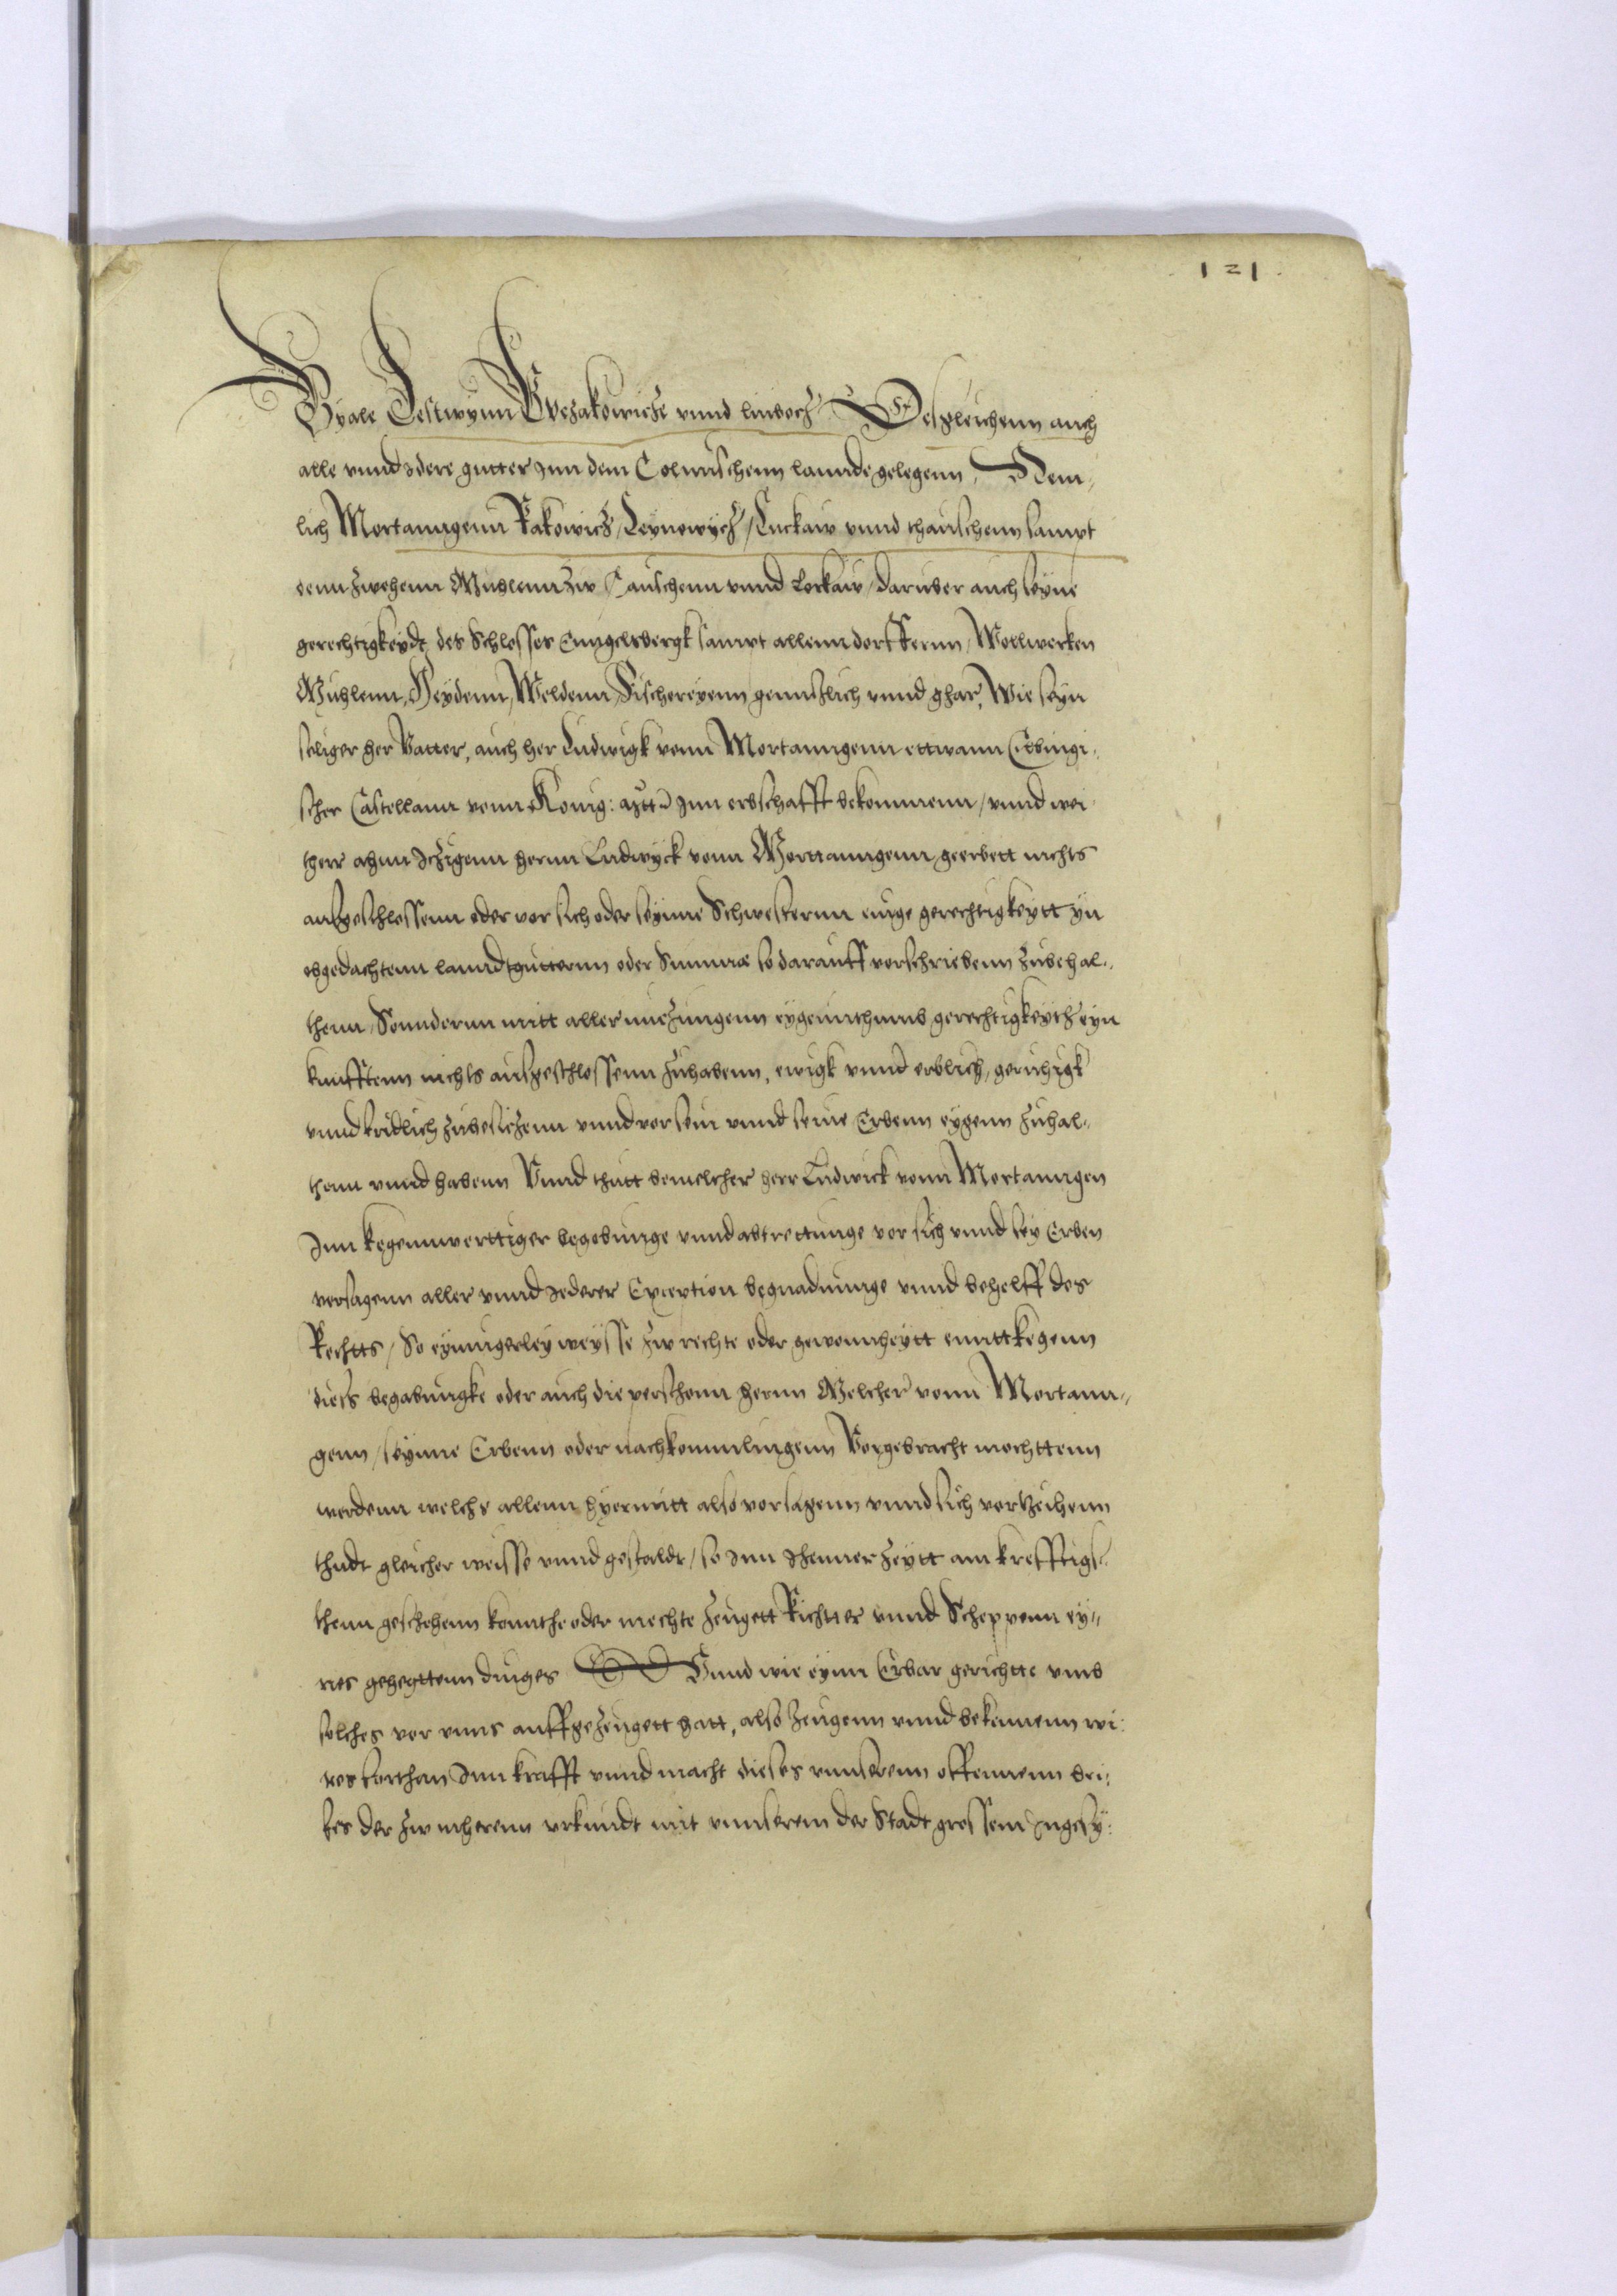 121
Byale Jestwynn Grezakowicze vnnd linboch Desgleichenn auch
alle vnnd Idere gutter Inn dem Colmischenn lannde gelegenn, Nem-
lich Mortanngenn Rakowicz / Leynowycz / Luckaw vnnd thauschenn sampt
denn zwehenn Muhlenn zw Tauschenn vnnd Lockaw / daruber auch seyne
gerechtigkeydt des Schlosses Enngelsbergk sampt allenn dorffernn / Vollwerken
Muhlenn, Heydenn, Weldenn, Fischereyenn gennslich vnnd ghar, Wie seyn
seliger her Vatter, auch her Ludwigk vonn Mortanngenn ettwann Elbingi-
scher Castellann vonn Konig: Inn erbschafft bekommenn / vnnd wei-
therr ahnn Itzigenn hernn Ludwyck vonn Morttanngenn geerbett nichts
ausgeschlossenn oder vor sich oder seynne Schwesternn einge gerechtigkeytt yn
obgedachtenn lanndtgutternn oder Summa so darauff vorschriebenn zubehal-
thenn / Sonndernn mitt aller nutzungenn eygennthumbs gerechtigkeyth eyn
kunfftenn nichts ausgeschlossenn zuhabenn, ewigk vnnd erblich, geruhigk
vnnd fridlich zubesitzenn vnnd vor sein vnnd seine Erbenn eygenn zuhal-
thenn vnnd habenn Vnnd thutt bemelther herr Ludwick vonn Mortanngen
Inn kegennwerttiger begebunge vnnd abtrettunge vor sich vnnd sey Erben
versagenn aller vnnd Iederer Exception begnadunge vnnd behelff des
Rechtts / So eynnigerley weysse zw rechte oder gewonnheytt enttkegenn
dieß begabungke oder auch die perschonn hernn Melcher vonn Mortann-
genn / seynne Erbenn oder nachkommlingenn Vorgebracht mochttenn
werdenn welchs allenn hyermitt also vorsagenn vnnd sich vorzeihenn
thudt gleicher weisse vnnd gestaldt / so Inn Ihenner zeytt am krefftigs-
thenn geschehenn konnthe oder mechte zeugett Richtter vnnd Scheppenn ey-
nes gehegttenn dinges Vnnd wie eynn Erbar gerichtte vmb
solches vor vnns auffgezeugett hatt, also zeugenn vnnd bekennenn wi-
res forthan Inn krafft vnnd macht dieses vnnserenn offennenn bri-
fes der zw mherenn vrkundt mit vnnserem der Stadt grossem Ingesy-